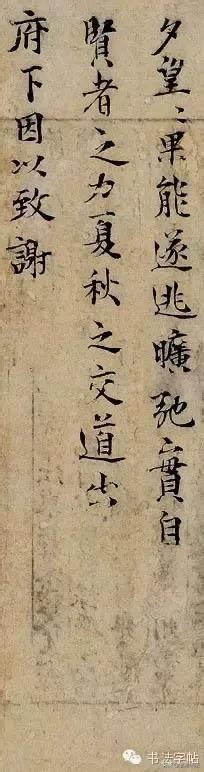 夕望〻果能遂逃曠弛實自
賢者之力夏秋之交道出
府下因以致謝
书法字帖